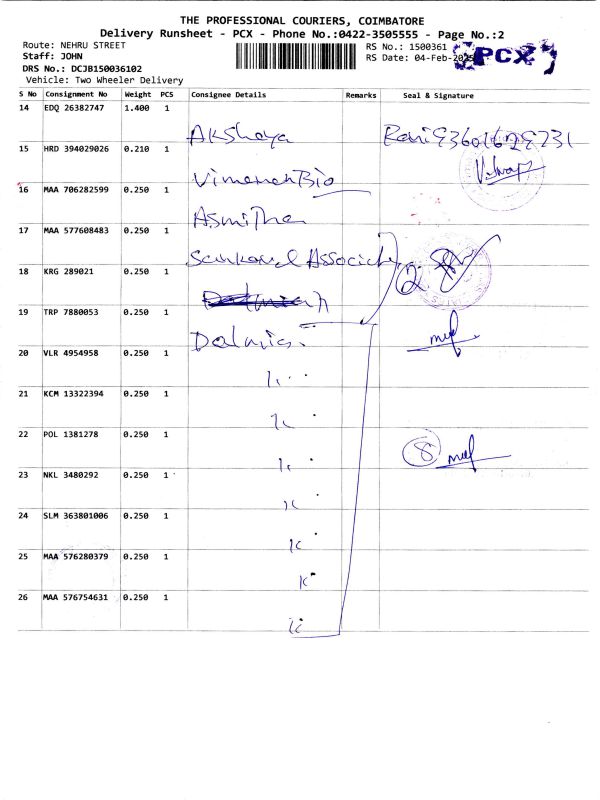 THE PROFESSIONAL COURIERS, COIMBATORE
Delivery Runsheet - PCX - Phone No.:0422-3505555 - Page No.:2
Route: NEHRU STREET
RS No.: 1500361
Staff: JOHN
RS Date: 04-Feb-2025
PCX
DRS No.: DCJB150036102
Vehicle: Two Wheeler Delivery
S No Consignment No Weight PCS Consignee Details Remarks Seal & Signature
14 EDQ 26382747 1.400 1
Akshaya
15 HRD 394029026 0.210 1
16 MAA 706282599 0.250 1
Asmitha
17 MAA 577608483 0.250 1
18 KRG 289021 0.250 1
2
19 TRP 7880053 0.250 1
Dalmia.
20 VLR 4954958 0.250 1
21 KCM 13322394 0.250 1
22 POL 1381278 0.250 1
8
23 NKL 3480292 0.250 1
24 SLM 363801006 0.250 1
25 MAA 576280379 0.250 1
26 MAA 576754631 0.250 1